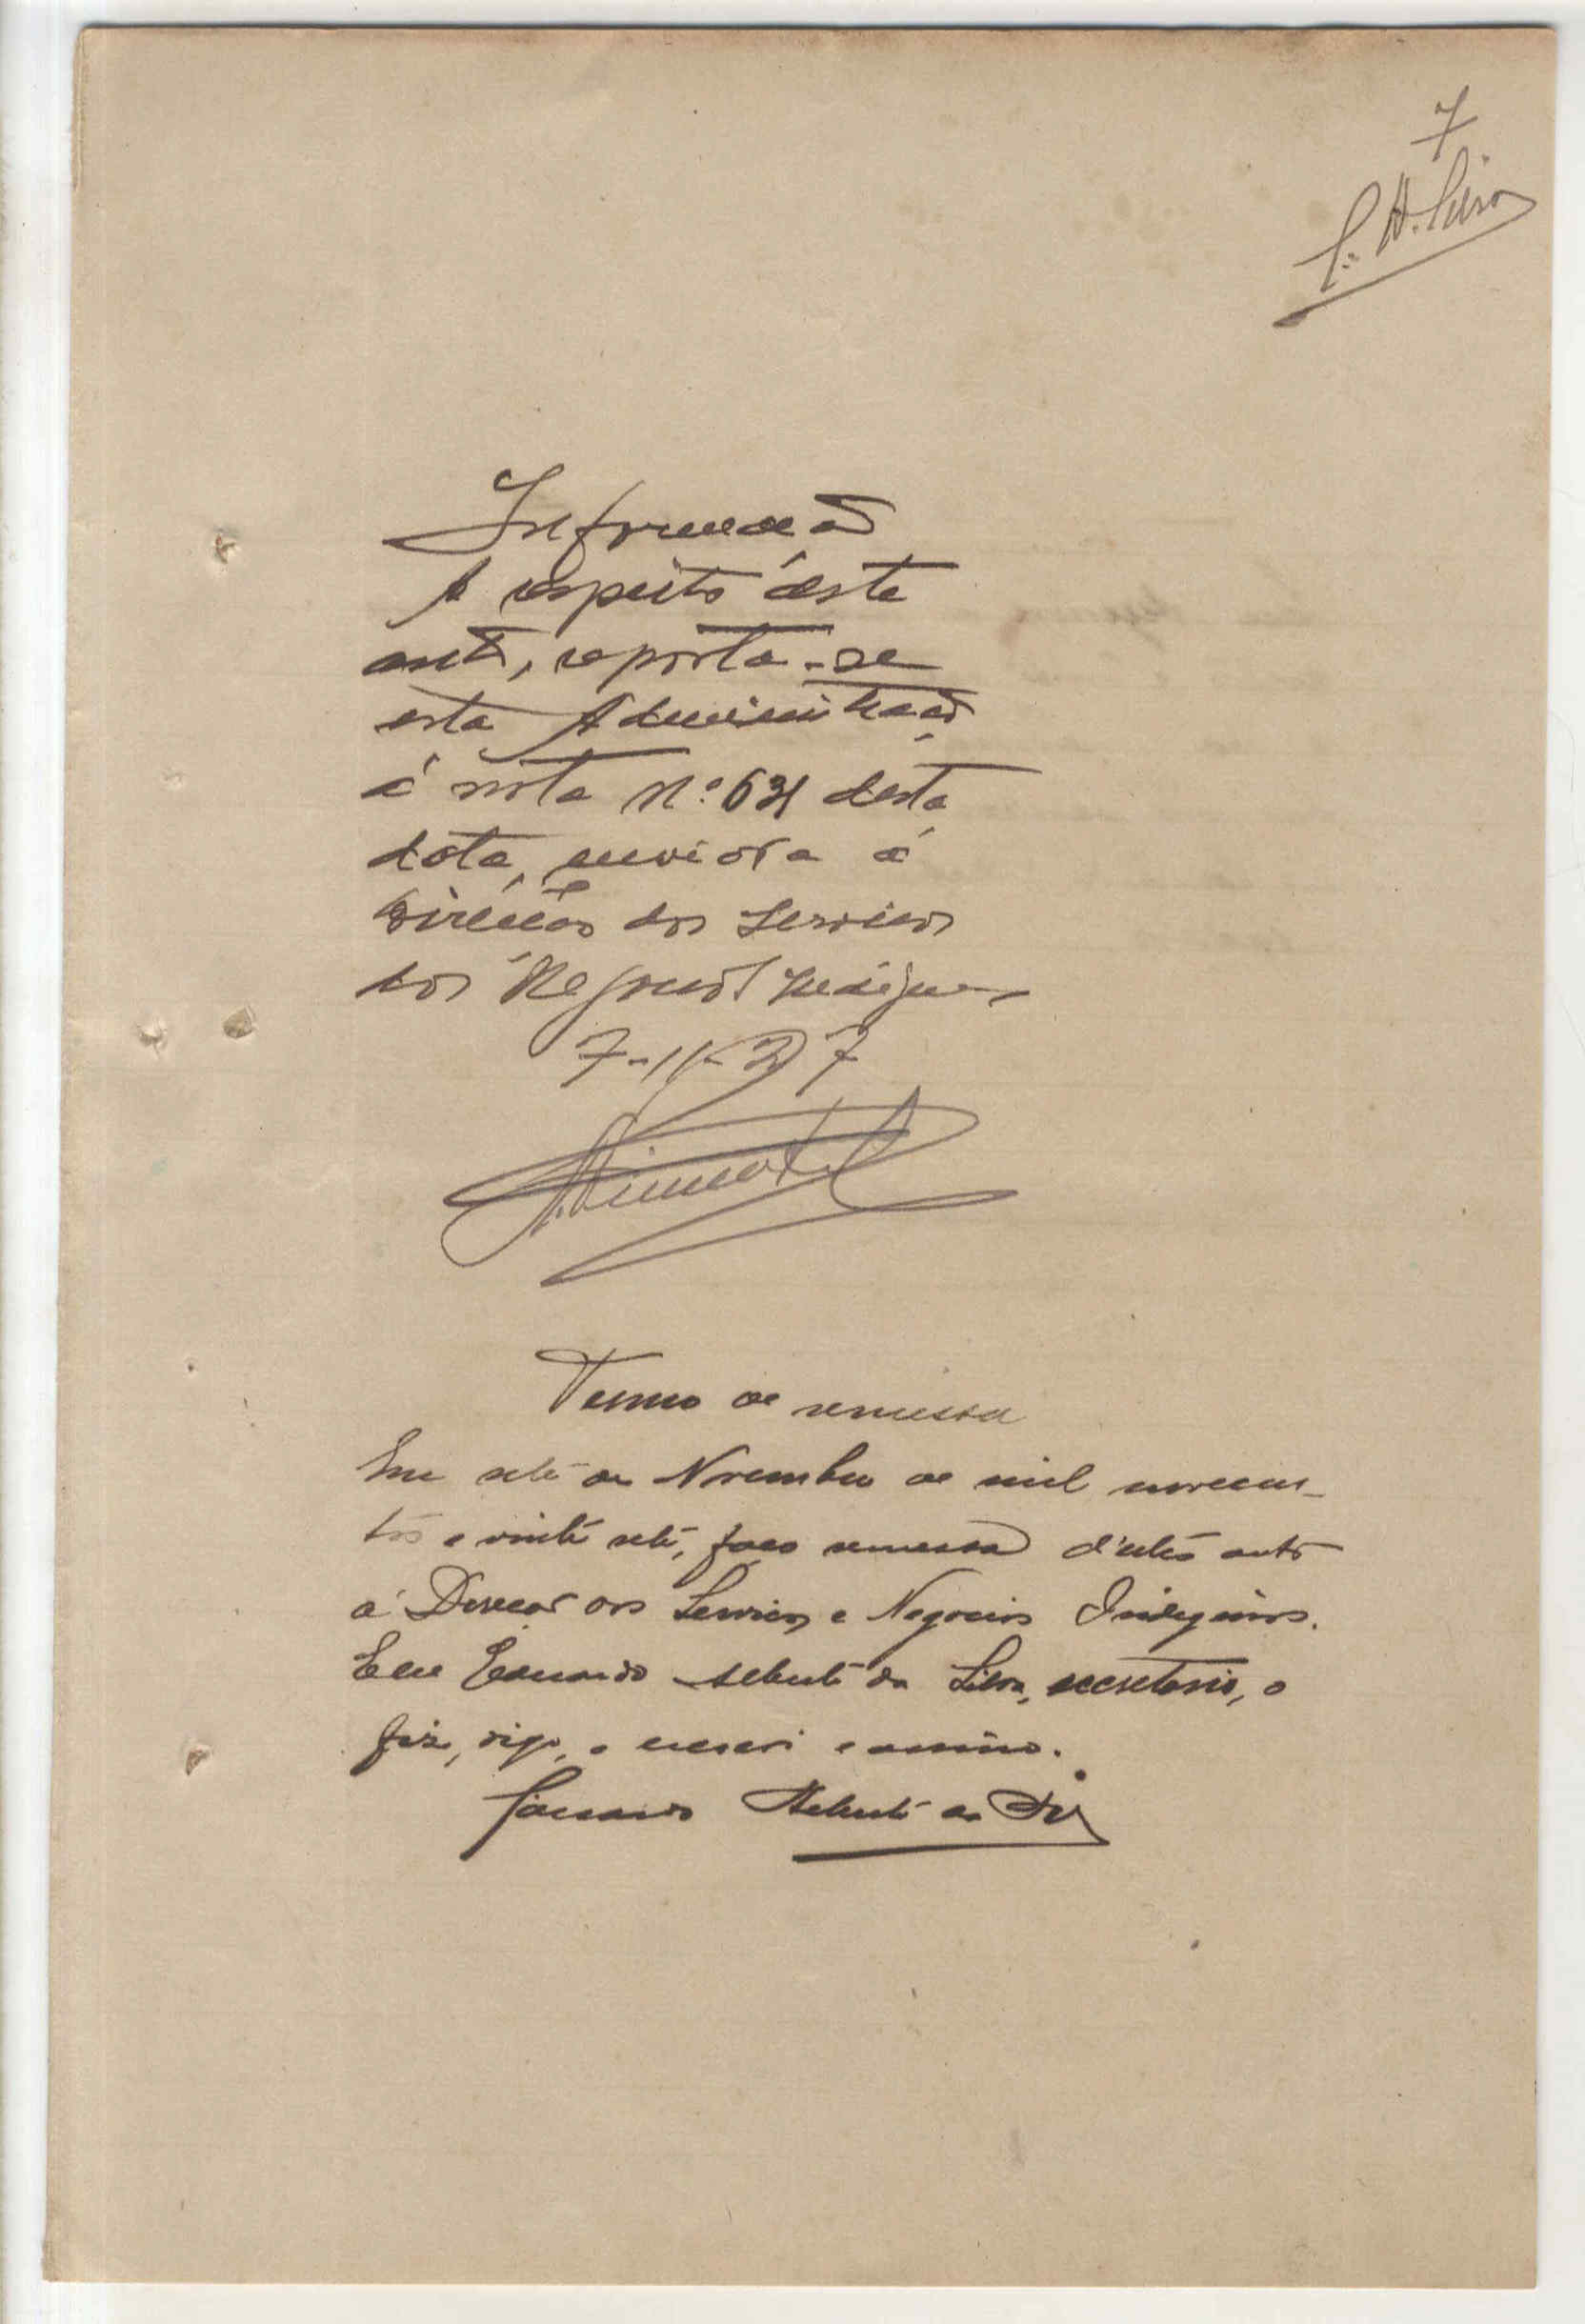 7
E. A. Silva
Informação
A respeito dêste
auto, reporta-se
esta Administração
á nota Nº 631 desta
data, enviada á
Direcção dos Serviços
dos Negocios Indigenas
7-11-927
Termo de remessa
Em sete de Novembro de mil novecen-
tos e vinte sete, faço remessa d'estes autos
á Direcção dos Serviços e Negocios Indigenas.
E eu Eduardo Alberto da Silva, secretario, o
fiz, digo, o escrevi e assino.
Eduardo Alberto da Silva